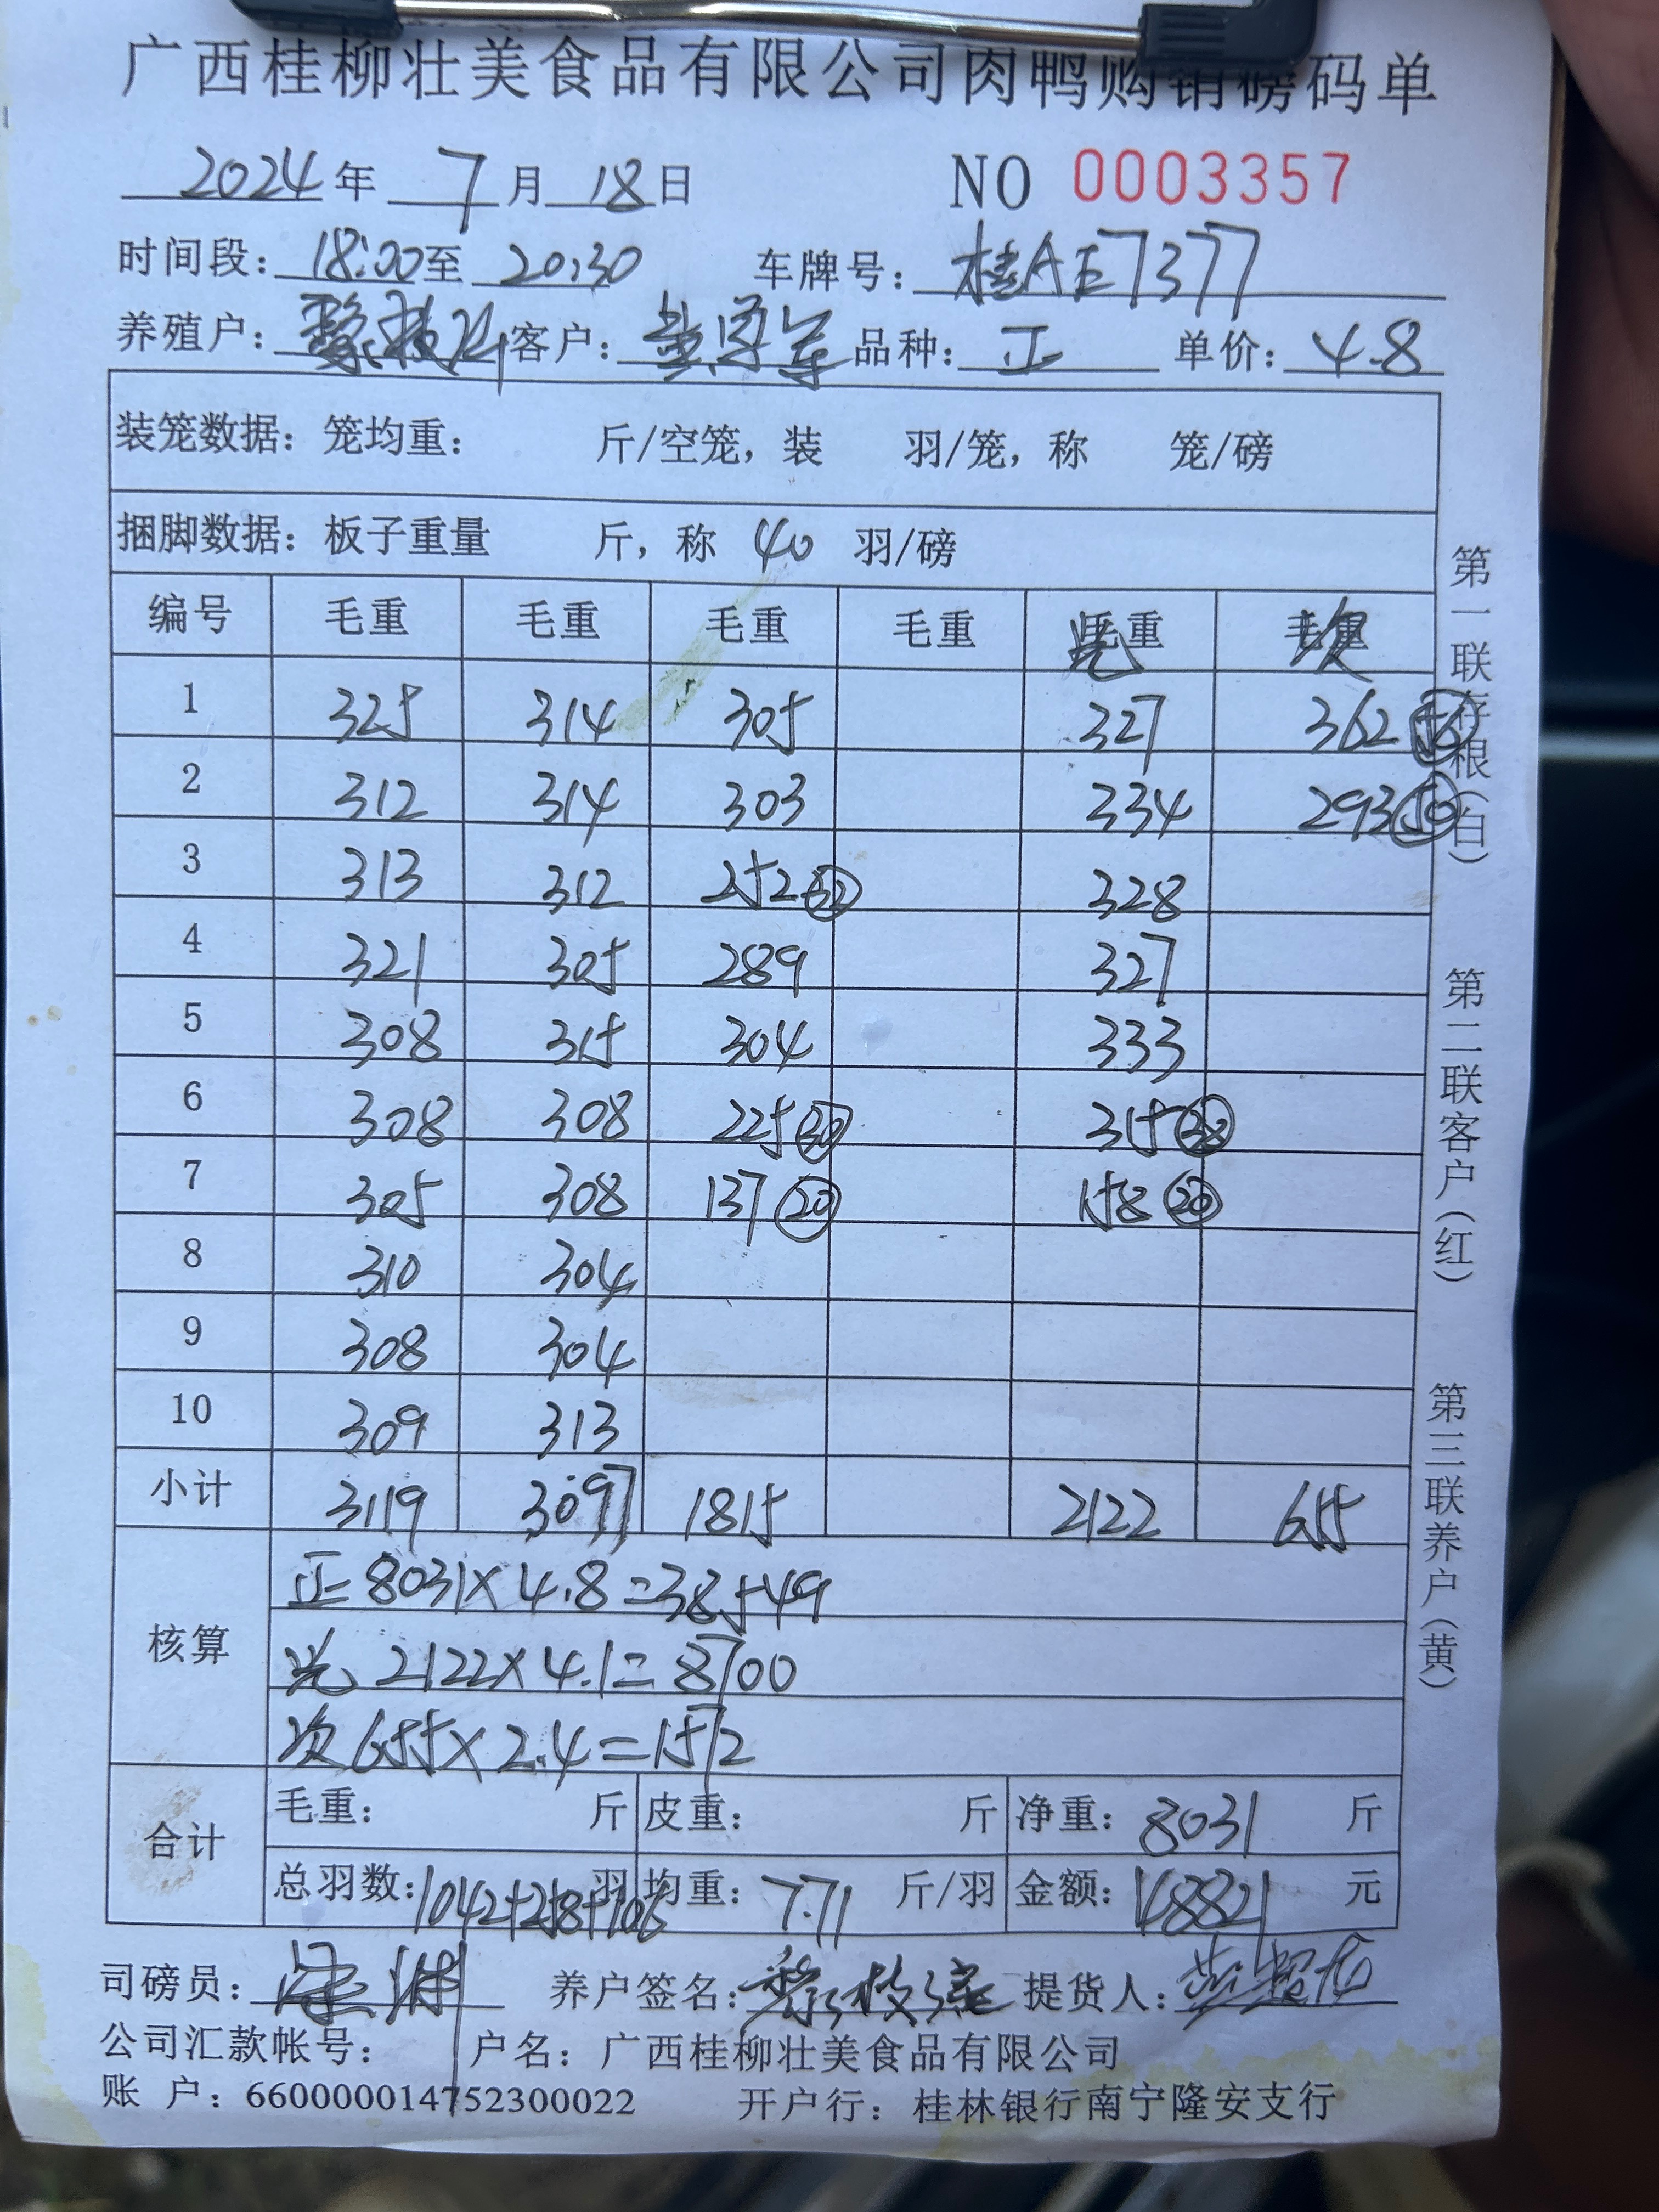 广西桂柳壮美食品有限公司肉鸭购销磅码单
2024年 7月 18日 NO 0003357
时间段：18:00至 20:30 车牌号：桂AE7377
养殖户： 客户： 品种：正 单价：4.8
装笼数据：笼均重： 斤/空笼，装 羽/笼，称 笼/磅
捆脚数据：板子重量 斤，称 40 羽/磅
编号 毛重 毛重 毛重 毛重 光毛重 次毛重
1 325 314 305 327 362
2 312 314 303 334 293 50
3 313 312 252 32 328
4 321 305 289 327
5 308 315 304 333
6 308 308 225 30 315 38
7 305 308 137 20 158 20
8 310 304
9 308 304
10 309 313
小计 3119 3097 1815 2122 655
核算
正 8031×4.8=38549
光 2122×4.1=8700
次 655×2.4=1572
合计
毛重： 斤 皮重： 斤 净重：8031 斤
总羽数：1042+218+106 羽 均重：7.71 斤/羽 金额：48821 元
司磅员： 养户签名： 提货人：
公司汇款帐号： 户名：广西桂柳壮美食品有限公司
账 户：660000014752300022 开户行：桂林银行南宁隆安支行
第一联存根（白）
第二联客户（红）
第三联养户（黄）